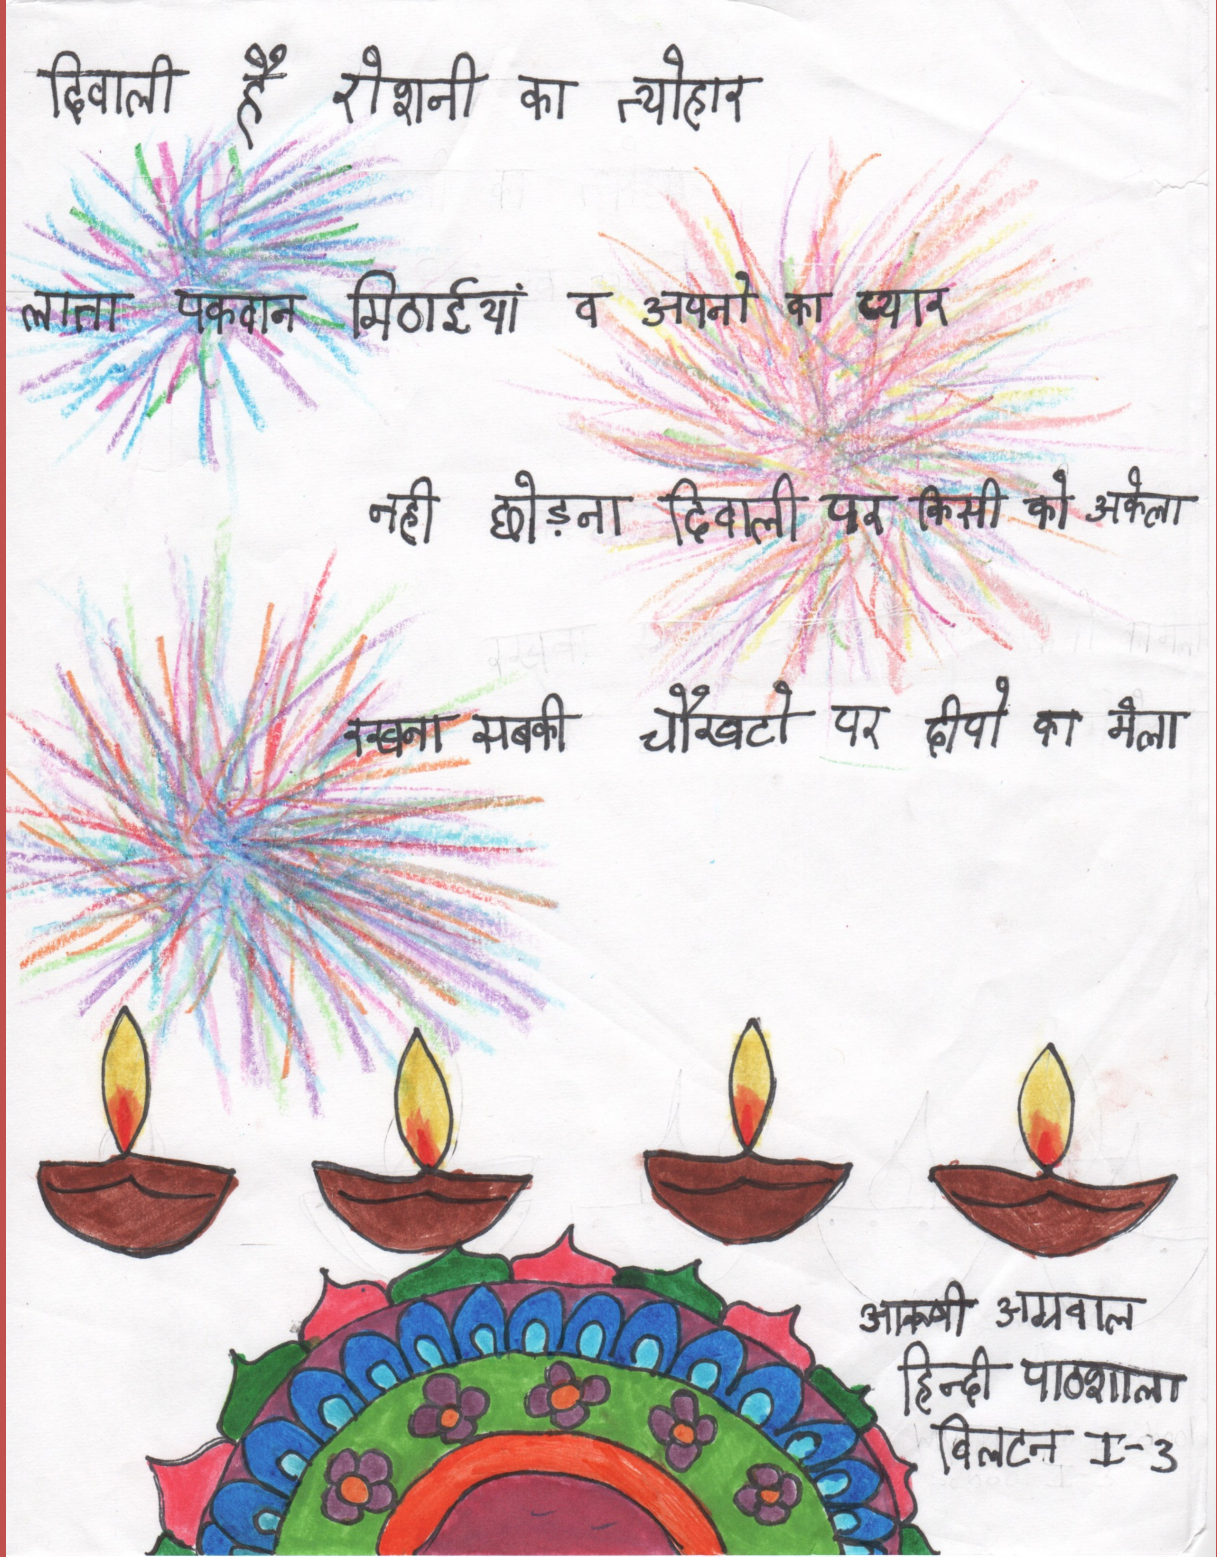 दिवाली हैं रोशनी का त्योहार
लाता पकवान मिठाईयां व अपनो का प्यार
नही छोड़ना दिवाली पर किसी को अकेला
रखना सबकी चौंखटो पर दीपो का मेला
अग्रवाल
हिन्दी पाठशाला
विलटन I-3